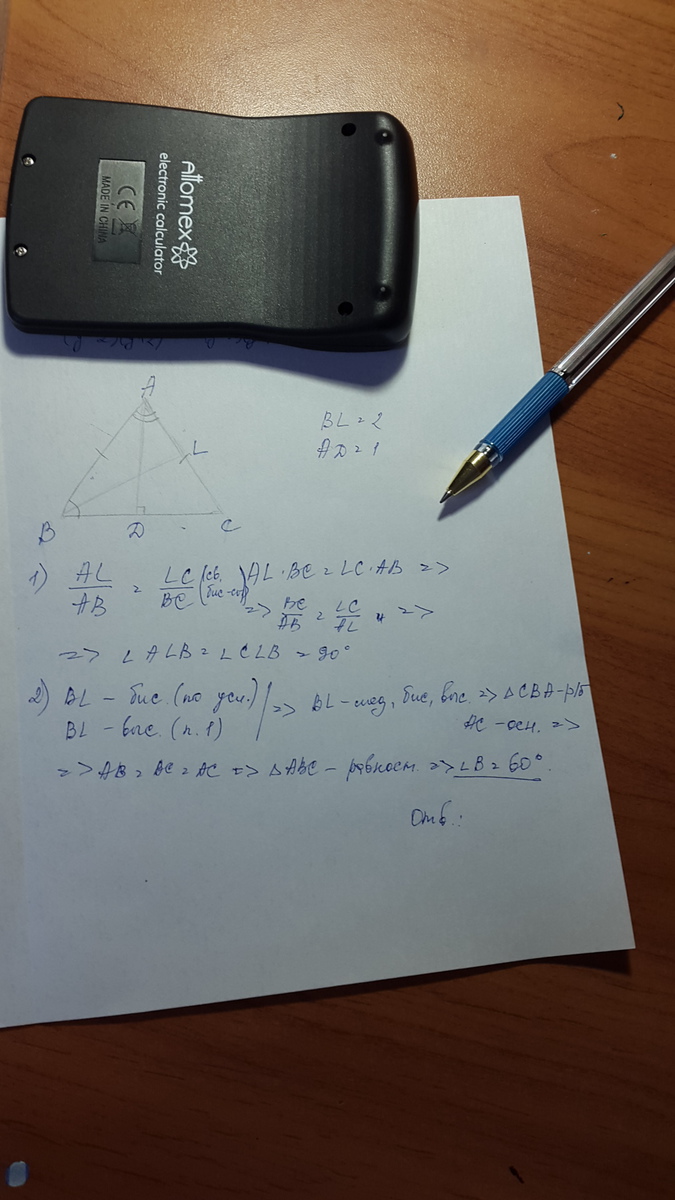 Attomex
electronic calculator
CE
MADE IN CHINA
A
L
B
D
C
BL = 2
AD = 1
1) AL/AB = LC/BC (св. бис-сы) AL·BC = LC·AB =>
=> BC/AB = LC/AL =>
=> ∠ALB = ∠CLB = 90°
2) BL – бис. (по усл.)
BL – выс. (п.1) => BL – мед, бис, выс. => △CBA – р/б
AC – осн. =>
=> AB = BC = AC => △ABC – равност. => ∠B = 60°.
Отв.: